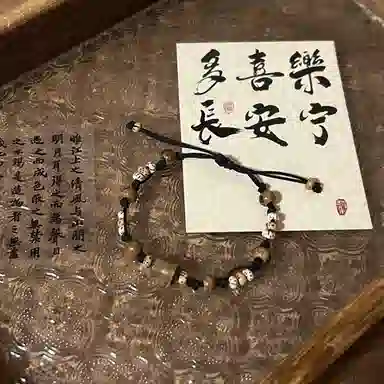 多喜樂
長安宁
惟江上之清風与山間之
明月耳得之而為聲目
遇之而成色取之無禁用
之不竭是造物者之無盡